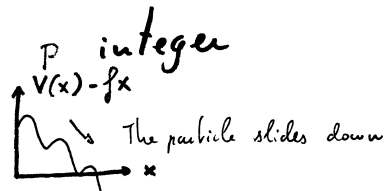 P integer
V(x) - fx
The particle slides down
x